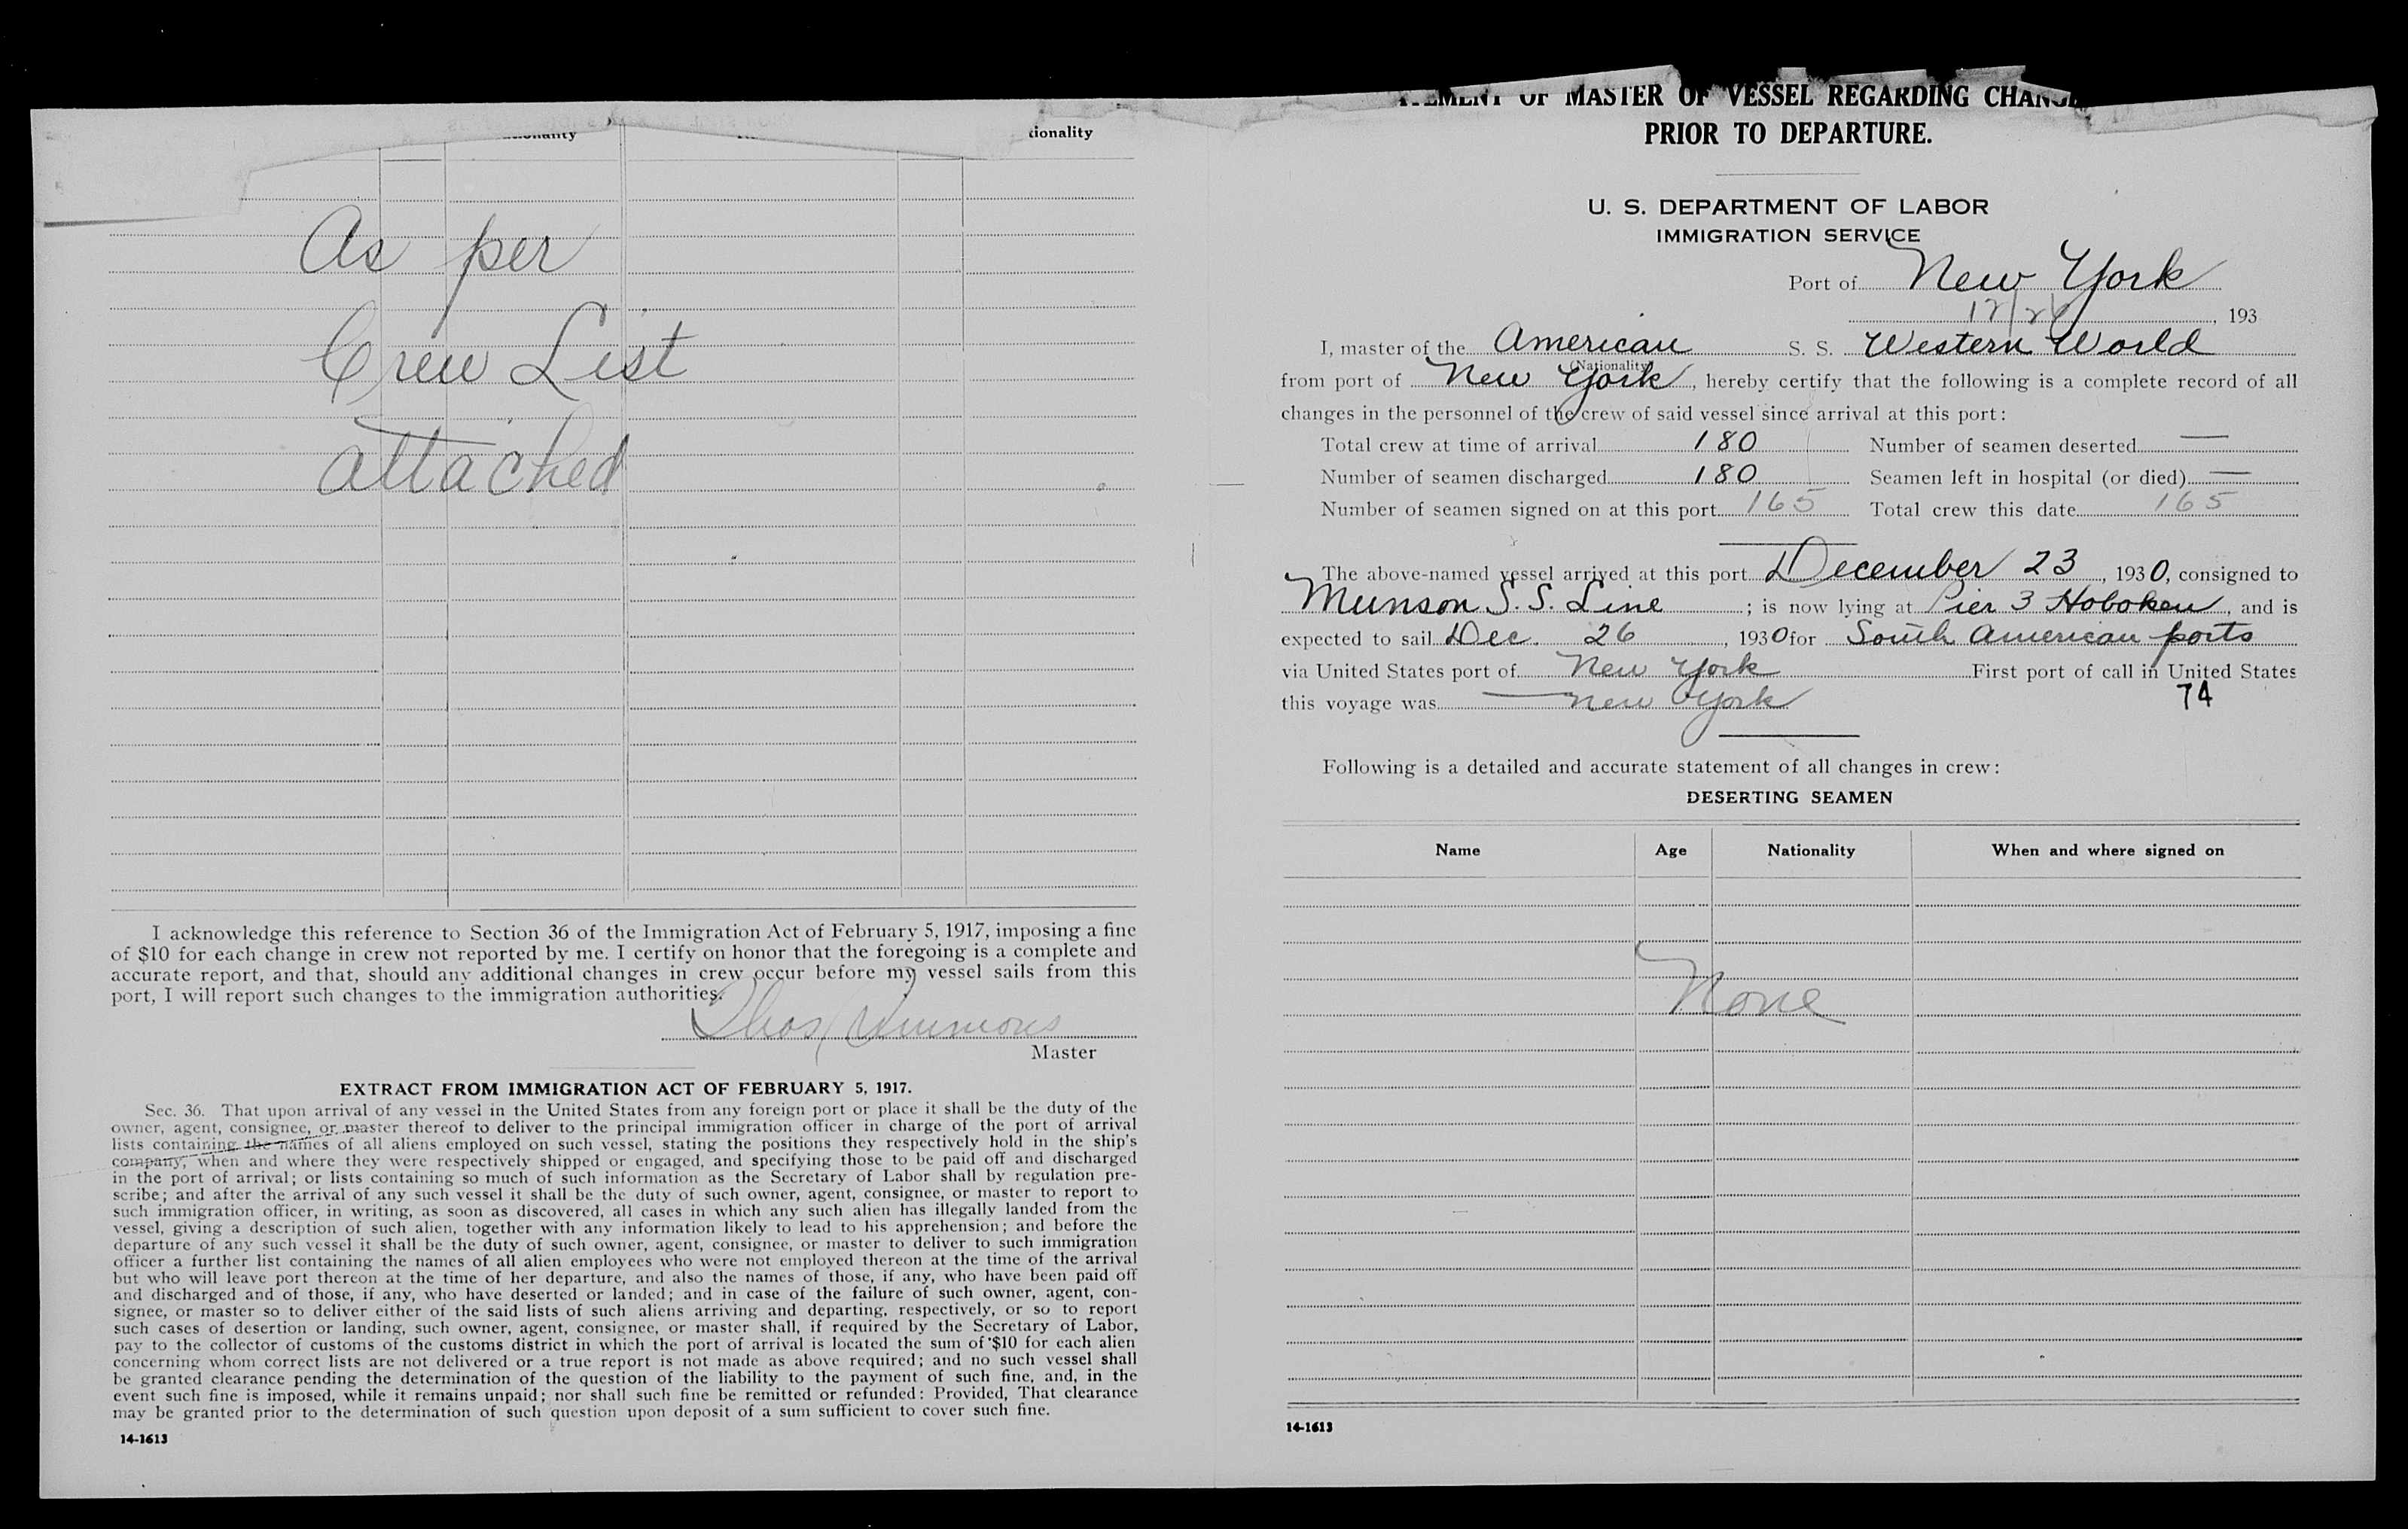 tionality
As per
Crew List
attached
I acknowledge this reference to Section 36 of the Immigration Act of February 5, 1917, imposing a fine
of $10 for each change in crew not reported by me. I certify on honor that the foregoing is a complete and
accurate report, and that, should any additional changes in crew occur before my vessel sails from this
port, I will report such changes to the immigration authorities.
Thos Simmons
Master
EXTRACT FROM IMMIGRATION ACT OF FEBRUARY 5, 1917.
Sec. 36. That upon arrival of any vessel in the United States from any foreign port or place it shall be the duty of the
owner, agent, consignee, or master thereof to deliver to the principal immigration officer in charge of the port of arrival
lists containing the names of all aliens employed on such vessel, stating the positions they respectively hold in the ship's
company, when and where they were respectively shipped or engaged, and specifying those to be paid off and discharged
in the port of arrival; or lists containing so much of such information as the Secretary of Labor shall by regulation pre-
scribe; and after the arrival of any such vessel it shall be the duty of such owner, agent, consignee, or master to report to
such immigration officer, in writing, as soon as discovered, all cases in which any such alien has illegally landed from the
vessel, giving a description of such alien, together with any information likely to lead to his apprehension; and before the
departure of any such vessel it shall be the duty of such owner, agent, consignee, or master to deliver to such immigration
officer a further list containing the names of all alien employees who were not employed thereon at the time of the arrival
but who will leave port thereon at the time of her departure, and also the names of those, if any, who have been paid off
and discharged and of those, if any, who have deserted or landed; and in case of the failure of such owner, agent, con-
signee, or master so to deliver either of the said lists of such aliens arriving and departing, respectively, or so to report
such cases of desertion or landing, such owner, agent, consignee, or master shall, if required by the Secretary of Labor,
pay to the collector of customs of the customs district in which the port of arrival is located the sum of $10 for each alien
concerning whom correct lists are not delivered or a true report is not made as above required; and no such vessel shall
be granted clearance pending the determination of the question of the liability to the payment of such fine, and, in the
event such fine is imposed, while it remains unpaid; nor shall such fine be remitted or refunded: Provided, That clearance
may be granted prior to the determination of such question upon deposit of a sum sufficient to cover such fine.
14-1613
OF MASTER OF VESSEL REGARDING
PRIOR TO DEPARTURE.
U. S. DEPARTMENT OF LABOR
IMMIGRATION SERVICE
Port of New York
12/26, 193
I, master of the American S. S. Western World
(Nationality)
from port of New York, hereby certify that the following is a complete record of all
changes in the personnel of the crew of said vessel since arrival at this port:
Total crew at time of arrival 180 Number of seamen deserted —
Number of seamen discharged 180 Seamen left in hospital (or died) —
Number of seamen signed on at this port 165 Total crew this date 165
The above-named vessel arrived at this port December 23, 1930, consigned to
Munson S. S. Line; is now lying at Pier 3 Hoboken, and is
expected to sail Dec. 26, 1930 for South American ports
via United States port of New York First port of call in United States
this voyage was — New York
74
Following is a detailed and accurate statement of all changes in crew:
DESERTING SEAMEN
Name Age Nationality When and where signed on
None
14-1613